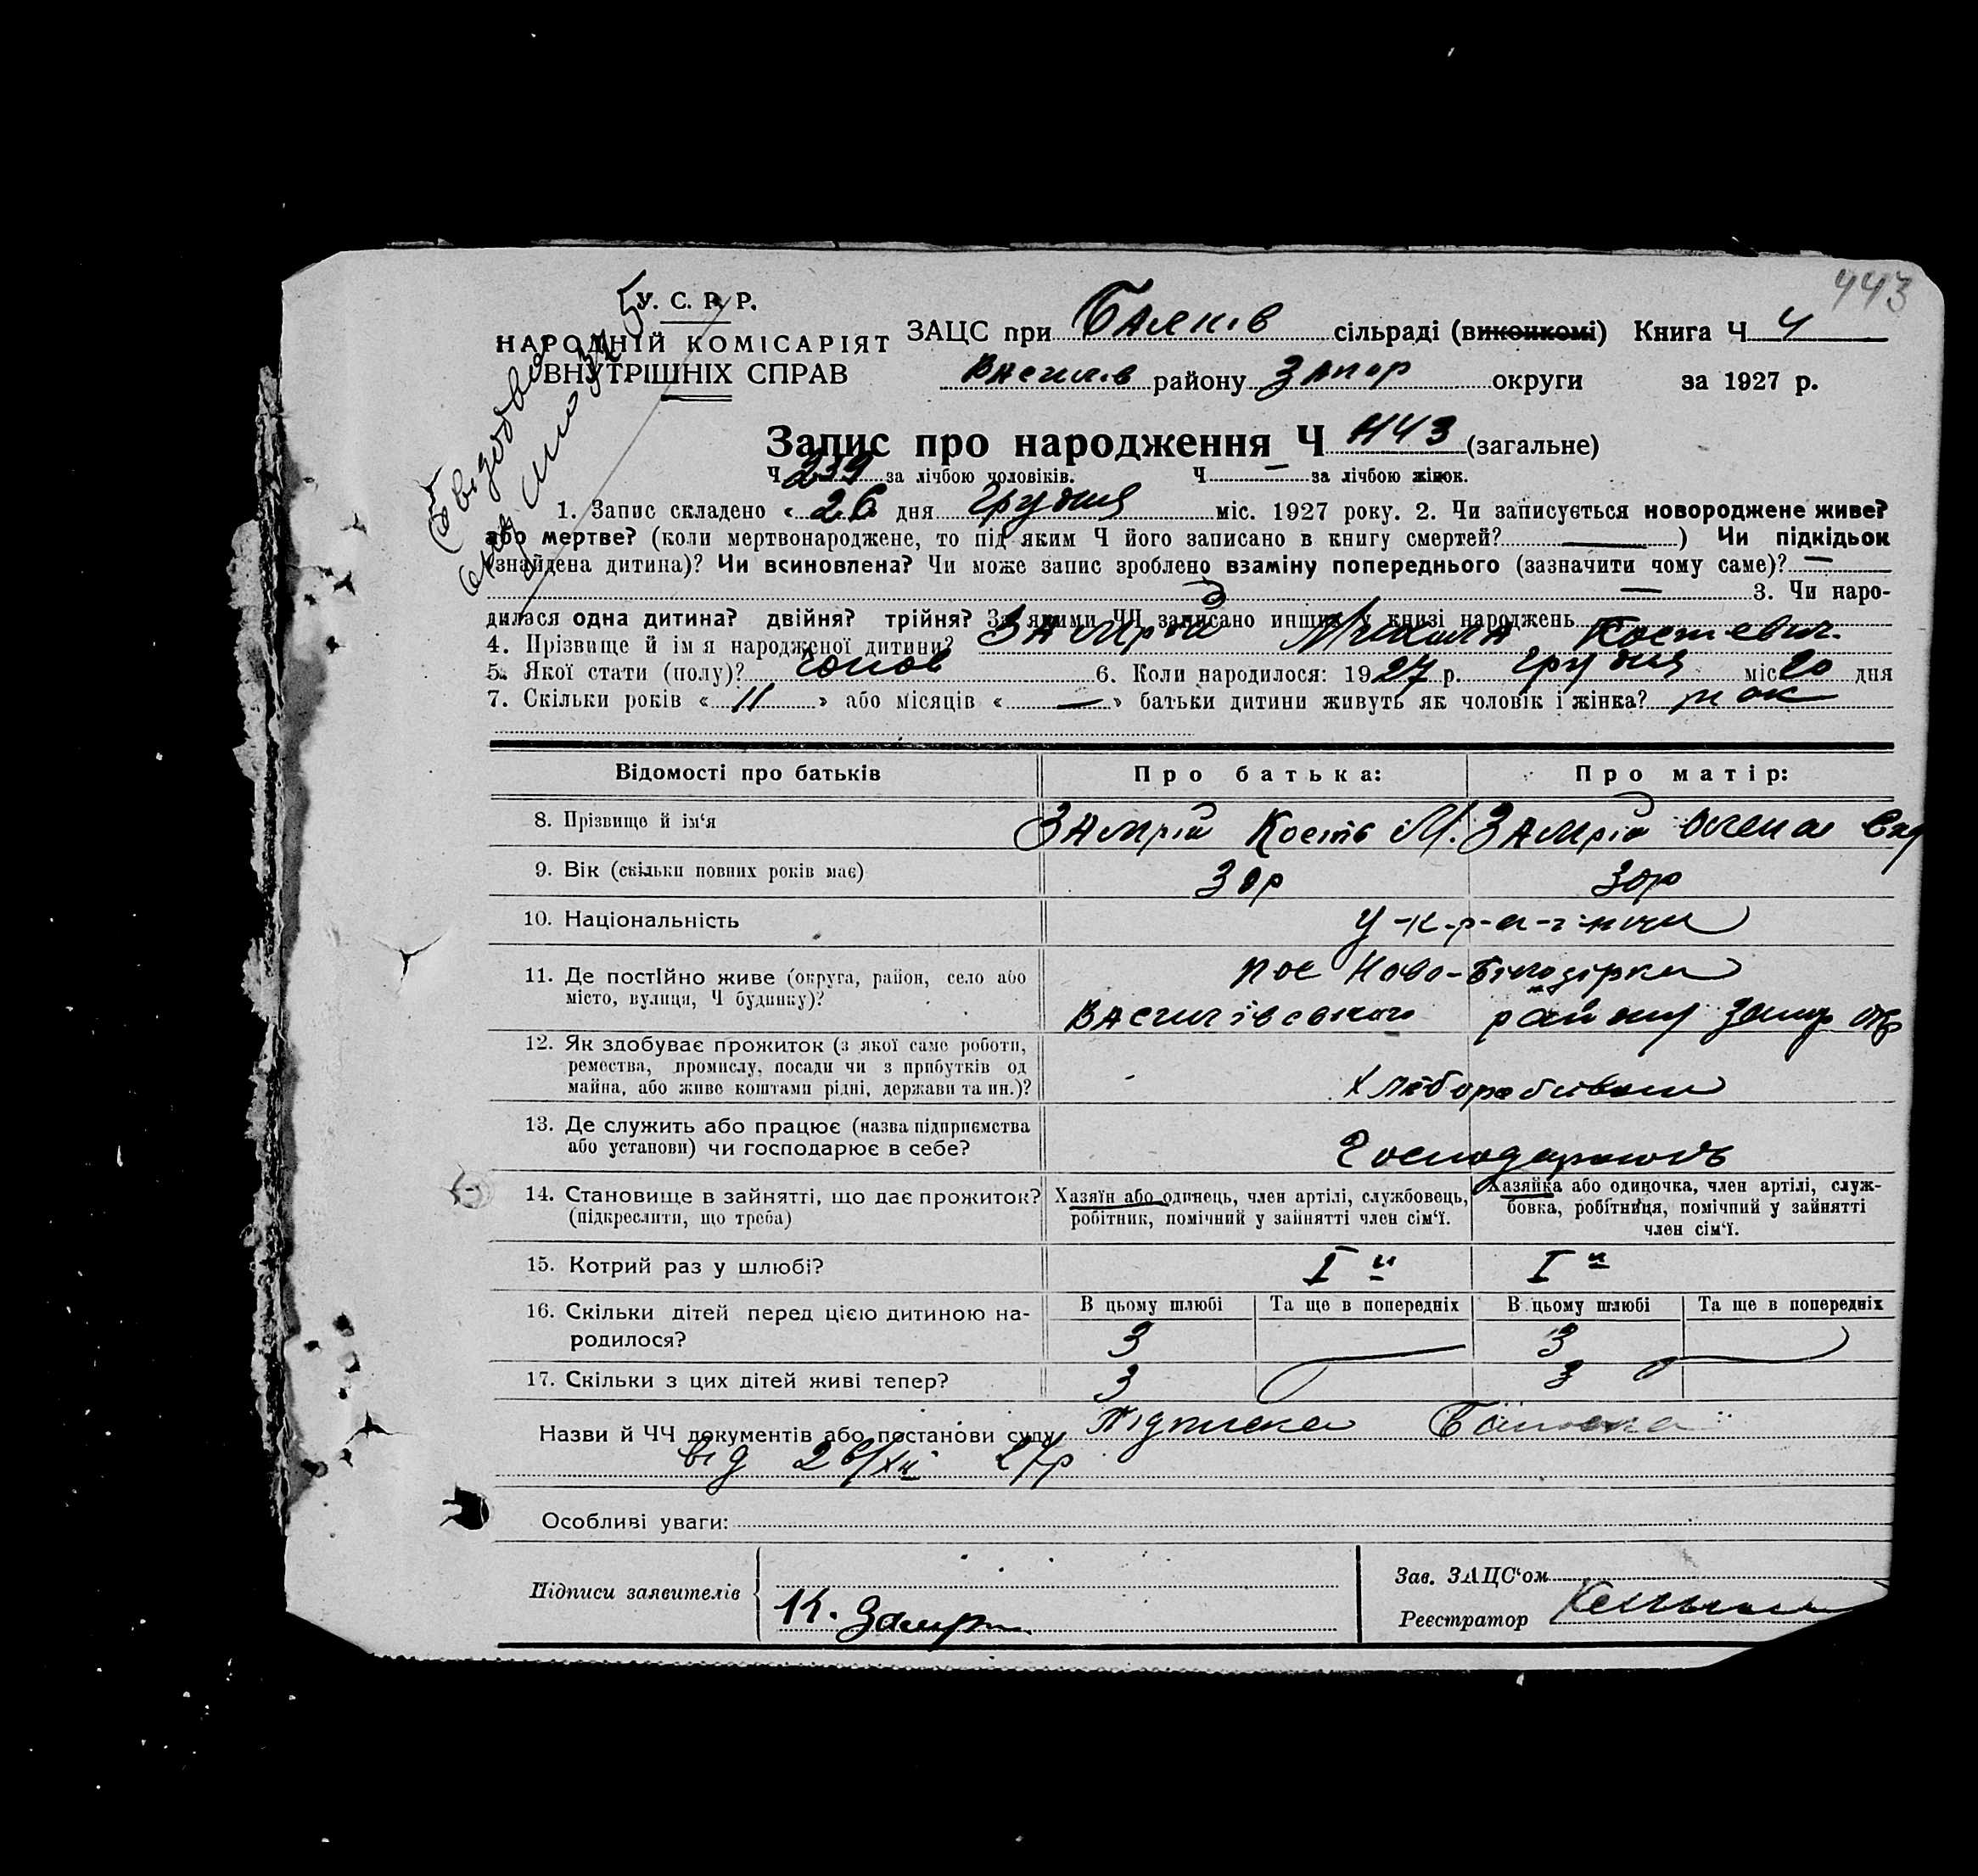 443
У. С. Р. Р.
НАРОДНІЙ КОМІСАРІЯТ
ВНУТРІШНІХ СПРАВ
ЗАЦС при Балків сільраді (виконкомі) Книга Ч 4
Василів району Запор округи за 1927 р.
Запис про народження Ч 443 (загальне)
Ч 239 за лічбою чоловіків. Ч — за лічбою жінок.
1. Запис складено « 26 дня Грудня міс. 1927 року. 2. Чи записується новороджене живе?
або мертве? (коли мертвонароджене, то під яким Ч його записано в книгу смертей? —) Чи підкідьок
(знайдена дитина)? Чи всиновлена? Чи може запис зроблено взаміну попереднього (зазначити чому саме)? —
— 3. Чи наро-
дилася одна дитина? двійня? трійня? За якими ЧЧ записано инших у книзі народжень
4. Прізвище й ім я народженої дитини? Замрій Микола Костевич.
5. Якої стати (полу)? чолов 6. Коли народилося: 1927 р. Грудня міс 20 дня
7. Скільки років « 11 » або місяців « — » батьки дитини живуть як чоловік і жінка? рок
Відомості про батьків Про батька: Про матір:
8. Прізвище й ім'я Замрій Кость М. Замрій Олена
9. Вік (скільки повних років має) 30р 30р
10. Національність У-к-р-а-ї-нци
11. Де постійно живе (округа, район, село або Ново-Білозірка
місто, вулиця, Ч будинку)? Василівського району Запор окр
12. Як здобуває прожиток (з якої саме роботи,
ремества, промислу, посади чи з прибутків од
майна, або живе коштами рідні, держави та ин.)? Хліборобством
13. Де служить або працює (назва підприємства
або установи) чи господарює в себе? Господарюють
14. Становище в зайнятті, що дає прожиток? Хазяїн або одинець, член артілі, службовець, Хазяйка або одиночка, член артілі, служ-
(підкреслити, що треба) робітник, помічний у зайнятті член сім'ї. бовка, робітниця, помічний у зайнятті
член сім'ї.
15. Котрий раз у шлюбі? I й I й
16. Скільки дітей перед цією дитиною на- В цьому шлюбі Та ще в попередніх В цьому шлюбі Та ще в попередніх
родилося? 3 — 3 —
17. Скільки з цих дітей живі тепер? 3 3
Назви й ЧЧ документів або постанови суду Підписка Батька
від 26/XII 27р
Особливі уваги:
Підписи заявителів К. Замрій
Зав. ЗАЦС'ом
Реєстратор